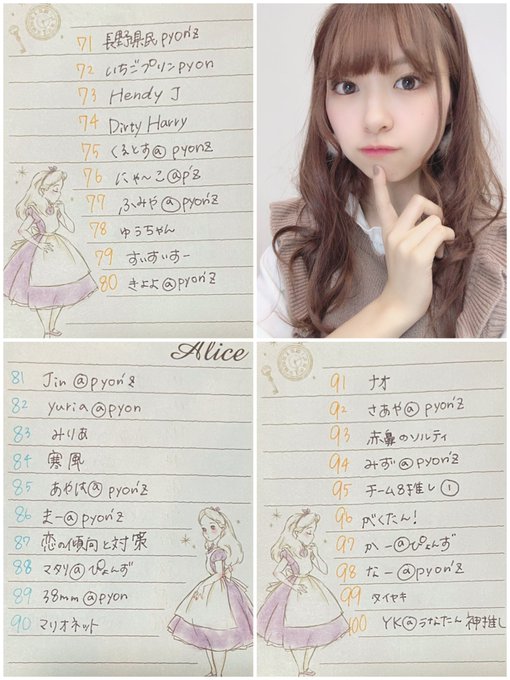 71 長野県民pyon'z
72 いちごプリンpyon
73 Hendy J
74 Dirty Harry
75 くるとす@pyonz
76 にゃんこ@p'z
77 ふみや@pyon'z
78 ゆうちゃん
79 すいすいすー
80 きよよ@pyon'z
Alice
81 Jin@pyon'z
82 yuria@pyon
83 みりあ
84 寒風
85 あやは@pyon'z
86 まー@pyon'z
87 恋の傾向と対策
88 マタリ@ぴょんず
89 38mm@pyon
90 マリオネット
91 ナオ
92 さあや@pyon'z
93 赤鼻のソルティ
94 みず@pyon'z
95 チーム8推し①
96 がくたん!
97 かー@ぴょんず
98 なー@pyon'z
99 タイヤキ
100 YK@うなたん神推し